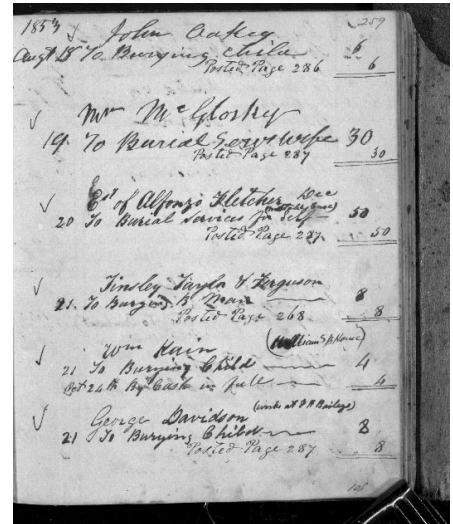 259
1853 John Oakey
Augt 18 To Burying Child 6
Posted Page 286 6
Mr McGlosky
19. To Burial Serv+ Wife 30
Posted Page 287 30
Est of Alfonzo Fletcher Dec
20 To Burial Services for Self 50
Posted Page 287. 50
Tinsley Taylor & Ferguson
21. To Burying B. Man 8
Posted Page 268 8
Wm Kain
21 To Burying Child 4
Oct 24th By Cash in full 4
George Davidson (works at
21 To Burying Child 8
Posted Page 287 8